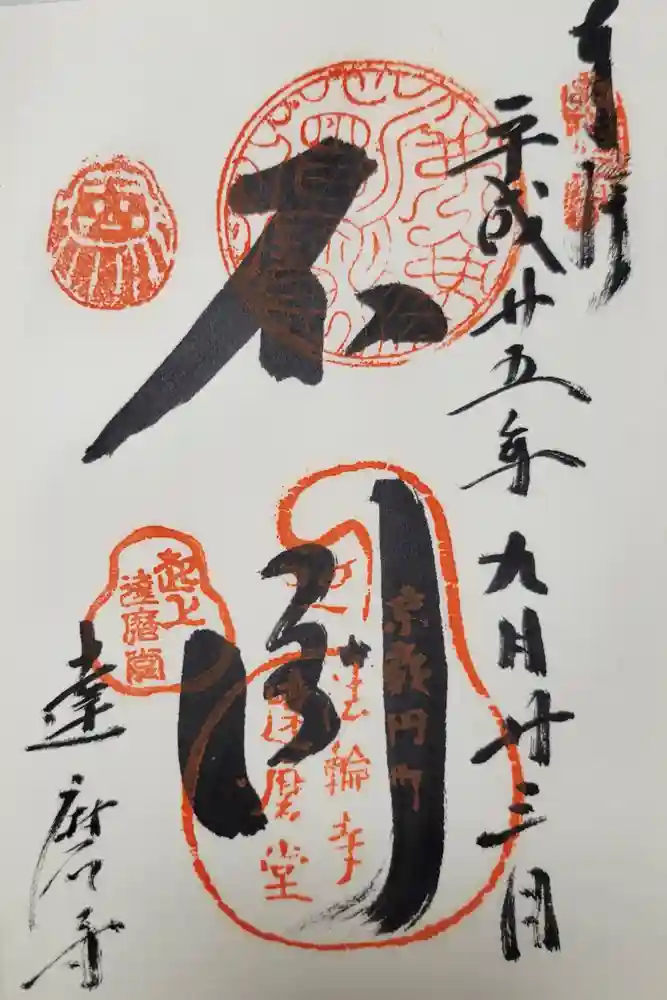 奉拝
平成廿五年九月廿三日
不倒
京都円町
法輪寺
達磨堂
起上
達磨堂
達磨寺